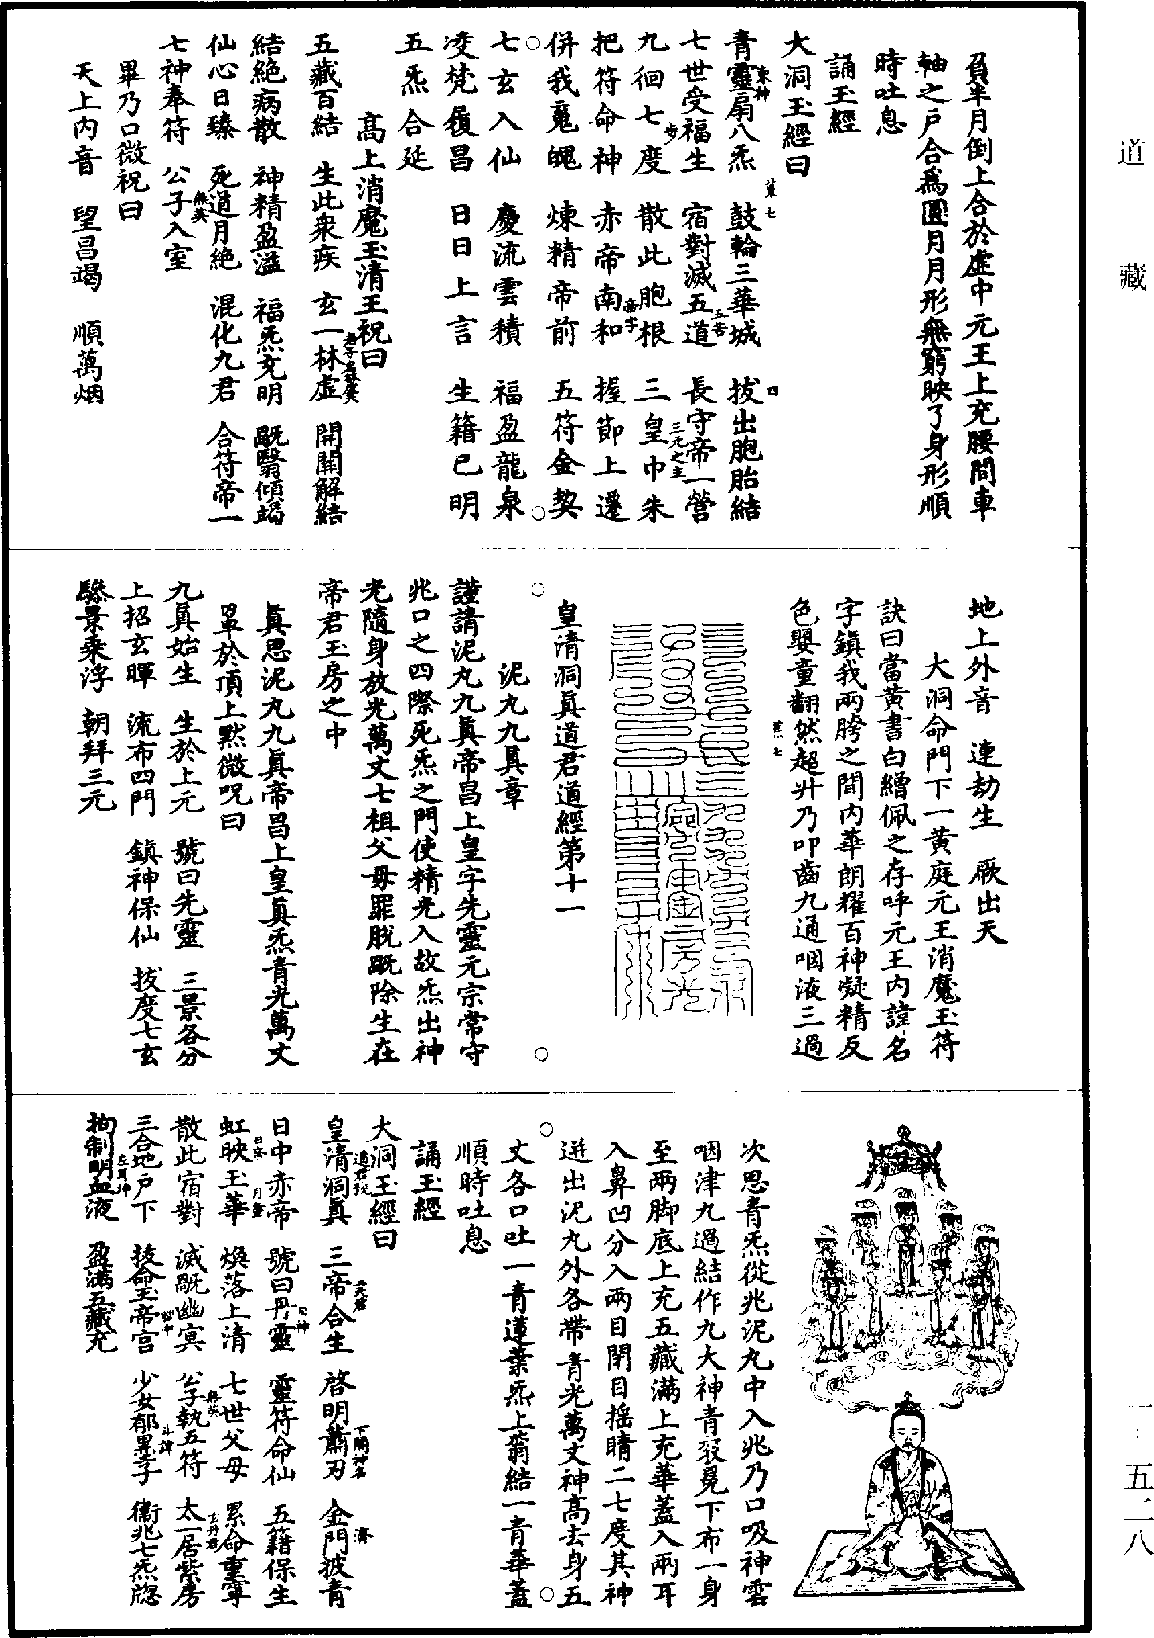 負半月倒上合於虛中元王上充腰間車
軸之戶合爲圓月月形無窮映了身形順
時吐息
誦玉經
大洞玉經曰
青靈扇八炁 鼓輪三華城 拔出胞胎結
七世受福生 宿對滅五道 長守帝一營
九徊七度 散此胞根 三皇巾朱
把符命神 赤帝南和 握節上遷
併我魂魄 煉精帝前 五符金契
七玄入仙 慶流雲積 福盈龍泉
凌梵履昌 日日上言 生籍已明
五炁合延
高上消魔玉清王祝曰
五藏百結 生此衆疾 玄一林虛 開關解結
結絕病散 神精盈溢 福炁充明 翳傾竭
仙心日臻 死道月絕 混化九君 合符帝一
七神奉符 公子入室
畢乃口微祝曰
天上內音 望昌竭 順萬烟
地上外音 連劫生 厥出天
大洞命門下一黃庭元王消魔玉符
訣曰當黃書白繒佩之存呼元王內諱名
字鎮我兩胯之間內華朗耀百神凝精反
色嬰童翻然超昇乃叩齒九通咽液三過
皇清洞真道君道經第十一
泥丸九真章
謹請泥丸九真帝昌上皇字先靈元宗常守
兆口之四際死炁之門使精光入故炁出神
光隨身放光萬丈七祖父母罪脫既除生在
帝君玉房之中
真思泥丸九真帝昌上皇真炁青光萬丈
罩於頂上默微呪曰
九真始生 生於上元 號曰先靈 三景各分
上招玄暉 流布四門 鎮神保仙 拔度七玄
驂景乘浮 朝拜三元
次思青炁從兆泥丸中入兆乃口吸神雲
咽津九過結作九大神青衣冕下布一身
至兩脚底上充五藏滿上充華蓋入兩耳
入鼻凹分入兩目閉目摇睛二七度其神
迸出泥丸外各帶青光萬丈神高去身五
丈各口吐一青蓮葉炁上蓊結一青華蓋
順時吐息
誦玉經
大洞玉經曰
皇清洞真 三帝合生 啓明蕭刃 金門披青
日中赤帝 號曰丹靈 靈符命仙 五籍保生
虹映玉華 煥落上清 七世父母 累命重寧
散此宿對 滅既幽冥 公子執五符 太一居紫房
三合地戶下 拔命玉帝宫 少女郁 子 衛兆七炁牎
拘制明血液 盈滿五藏充
道藏
一·五二八